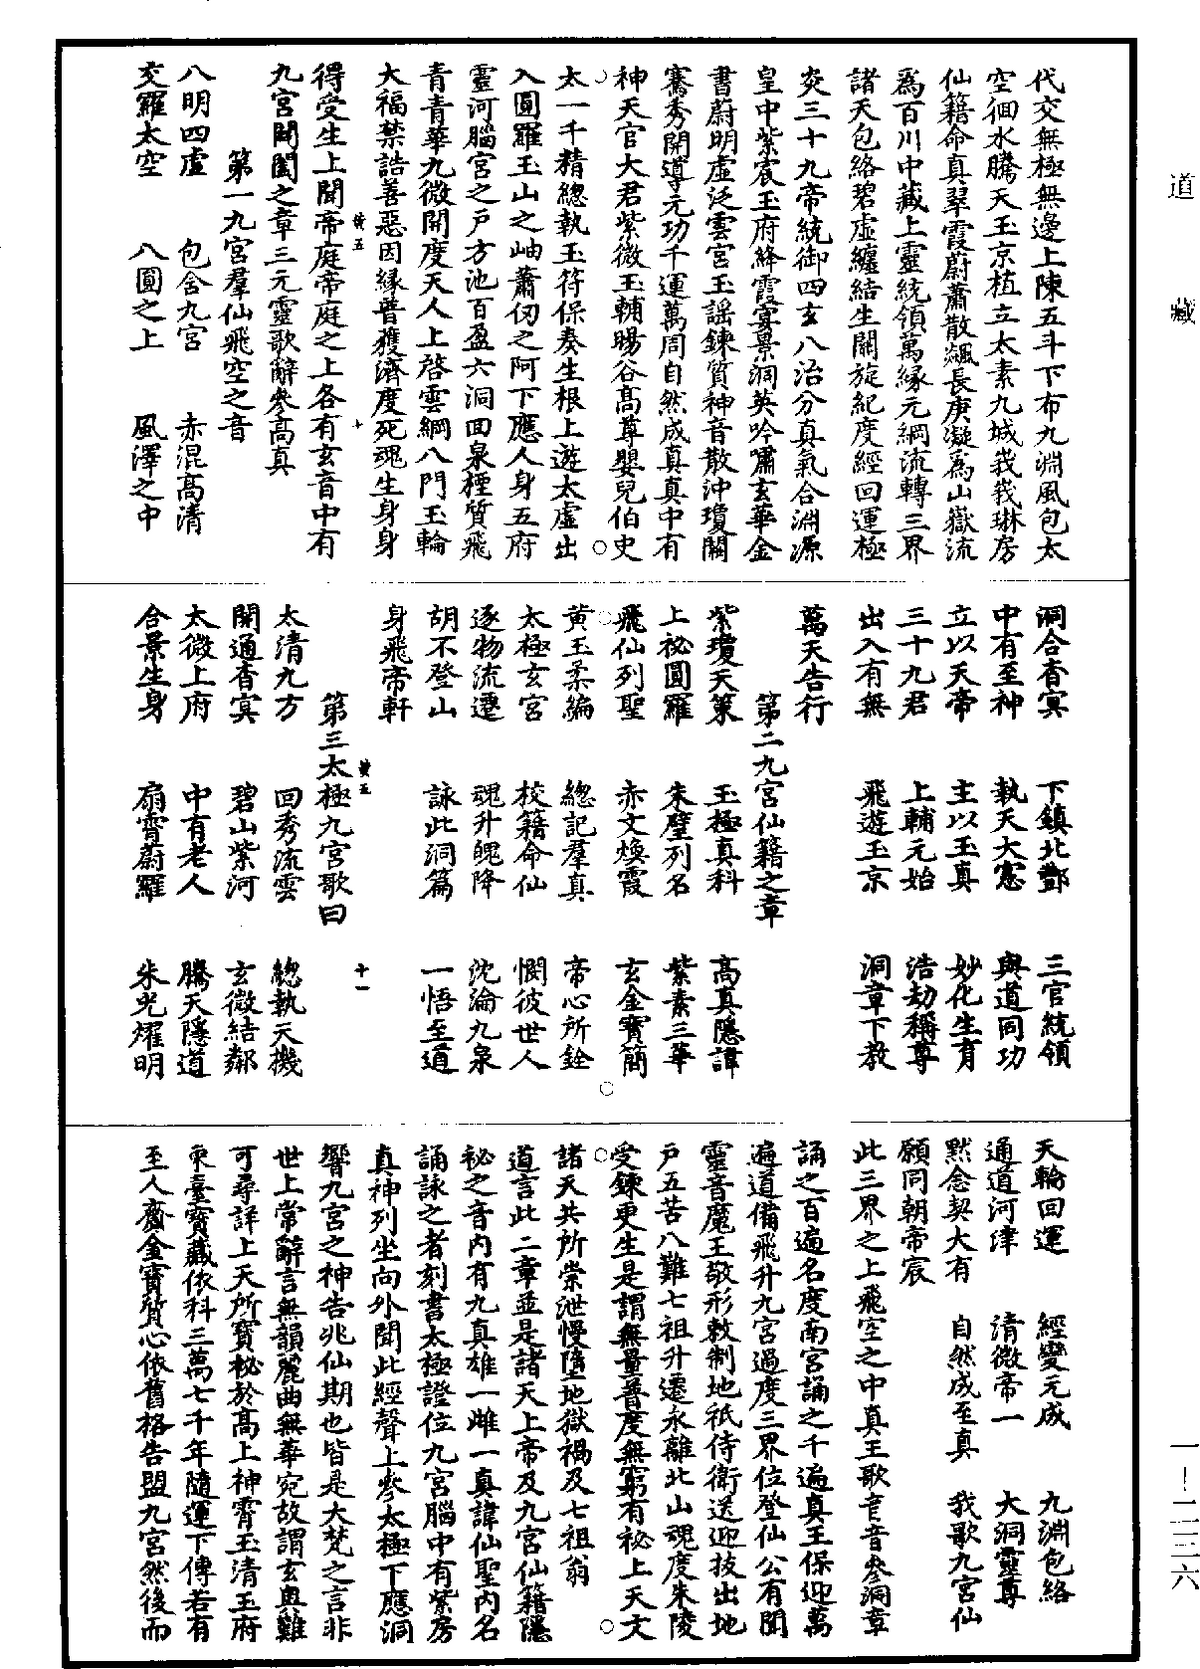 道藏
代交無極無邊上陳五斗下布九淵風包太
空徊水騰天玉京植立太素九城峩峩琳房
仙籍命真翠霞蔚蕭散飆長庚凝為山嶽流
為百川中藏上靈統領萬緣元綱流轉三界
諸天包絡碧虛纏結生關旋紀度經回運極
炎三十九帝統御四玄八治分真氣合淵源
皇中紫宸玉府絳霞宴景洞英吟嘯玄華金
書蔚明虛泛雲宮玉謡鍊質神音散沖瓊關
騫秀開導元功千運萬周自然成真真中有
神天官大君紫微玉輔暘谷高尊嬰兒伯史
太一千精總執玉符保奏生根上遊太虛出
入圓羅玉山之岫蕭仞之阿下應人身五府
靈河腦宮之戶方池百盈六洞回泉㮰質飛
青青華九微開度天人上啓雲綱八門玉輪
大福禁誥善惡因緣普獲濟度死魂生身身
黃五 十
得受生上聞帝庭帝庭之上各有玄音中有
九宮閶闔之章三元靈歌辭參高真
第一九宮羣仙飛空之音
八明四虛 包含九宮 赤混高清
交羅太空 八圓之上 風澤之中
洞合杳冥 下鎮北酆 三官統領
中有至神 執天大憲 與道同功
立以天帝 主以玉真 妙化生育
三十九君 上輔元始 浩劫稱尊
出入有無 飛遊玉京 洞章下教
萬天告行
第二九宮仙籍之章
紫瓊天策 玉極真科 高真隱諱
上祕圓羅 朱璧列名 紫素三華
飛仙列聖 赤文煥霞 玄金寶簡
黃玉柔編 總記羣真 帝心所銓
太極玄宮 校籍命仙 憫彼世人
逐物流遷 魂升魄降 沈淪九泉
胡不登山 詠此洞篇 一悟至道
身飛帝軒
黃五 十一
第三太極九宮歌曰
太清九方 回秀流雲 總執天機
開通杳冥 碧山紫河 玄微結鄰
太微上府 中有老人 騰天隱道
合景生身 扇霄蔚羅 朱光耀明
天輪回運 經變元成 九淵包絡
通道河津 清微帝一 大洞靈尊
黙念契大有 自然成至真 我歌九宮仙
願同朝帝宸
此三界之上飛空之中真王歌音音參洞章
誦之百遍名度南宮誦之千遍真王保迎萬
遍道備飛升九宮過度三界位登仙公有聞
靈音魔王敬形敕制地祇侍衛送迎拔出地
戶五苦八難七祖升遷永離北山魂度朱陵
受鍊更生是謂無量普度無窮有祕上天文
諸天共所崇泄慢墮地獄禍及七祖翁
道言此二章並是諸天上帝及九宮仙籍隱
祕之音內有九真雄一雌一真諱仙聖內名
誦詠之者刻書太極證位九宮腦中有紫房
真神列坐向外聞此經聲上參太極下應洞
響九宮之神告兆仙期也皆是大梵之言非
世上常辭言無韻麗曲無華宛故謂玄奥難
可尋詳上天所寶秘於高上神霄玉清玉府
東臺寶藏依科三萬七千年隨運下傳若有
至人齎金寶質心依舊格告盟九宮然後而
一—二三六